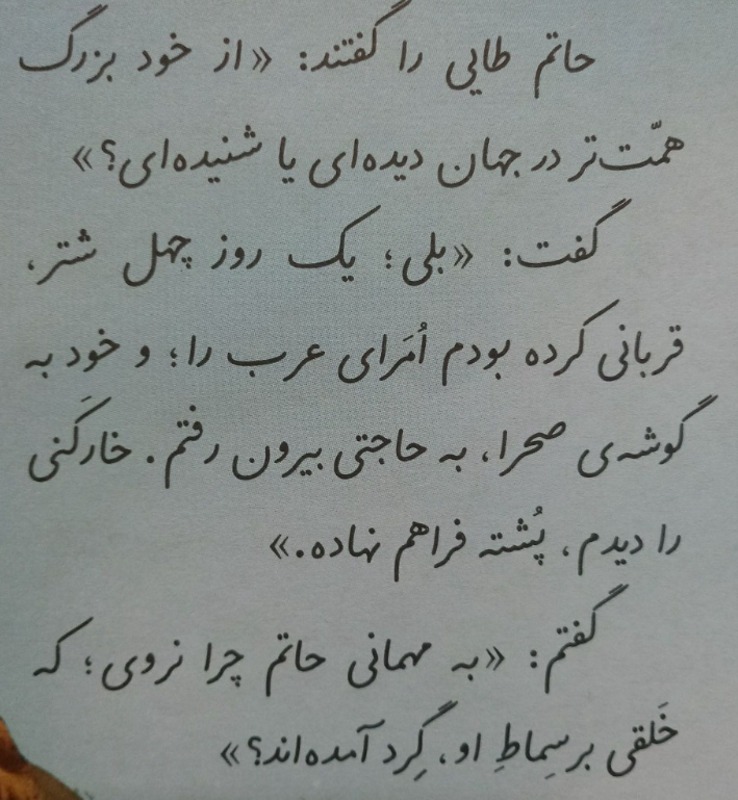 حاتم طایی را گفتند: «از خود بزرگ
همّت‌تر در جهان دیده‌ای یا شنیده‌ای؟»
گفت: «بلی؛ یک روز چهل شتر،
قربانی کرده بودم اُمَرای عرب را؛ و خود به
گوشه‌ی صحرا، به حاجتی بیرون رفتم. خارکَنی
را دیدم، پُشته فراهم نهاده.»
گفتم: «به مهمانی حاتم چرا نروی؛ که
خَلقی بر سِماطِ او، گِرد آمده‌اند؟»